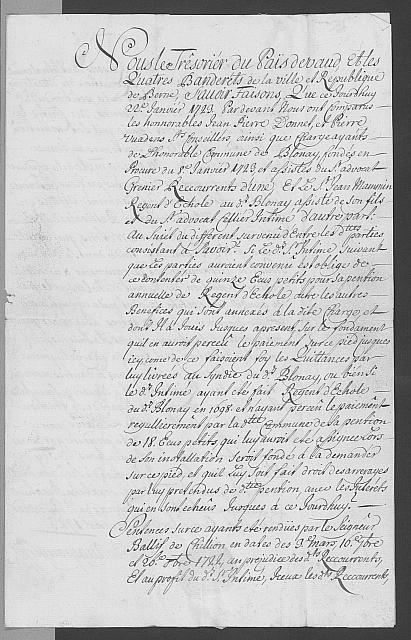 Nous le Trésorier du Païs devaud, Et les
Quatres Banderets de la ville et Republique
de Berne, Scavoir Faisons, Que ce Jourdhuy
22e Janvier 1723. Pardevant Nous ont comparus
les honnorables Jean Pierre Donnet, et Pierre
Conseillers, ainsi que Chargeayants
de L'honorable Commune de Blonay, fondés en
Procure du 8e Janvier 1723 et assistés du Sr. advocat
Grenier Reccourrents d'une, Et le Sr. Jean
Regent d'Echole au dt. Blonay assisté de son fils
et du Sr. advocat Intime d'autre part:
Au Sujet du different survenu Entre les dttes parties
consistant a Scavoir. Si le dt. Sr. Intime Suivant
que les parties auroient convenu est obligé de
se contenter de quinze Ecus petits pour sa pention
annuelle de Regent d'Echole, outre les autres
Benefices qui Sont annexés a la dite Charge, et
dont Il a Jouïs Jusques apresent, Sur le fondament
quil en auroit perceu le paiement sur ce pied jusques
icy, comme de ce faisoient foy les Quittances par
luy livrées au Syndic du dt. Blonay, ou bien Si
le dt. Intime ayant été fait Regent d'Echole
du dt. Blonay en 1698. et ayant perceu le paiement
regullierement par la dtte Commune de sa pention
de 18. Ecus petits, qui luy auroit été assignée Lors
de son installation Seroit fondé a la demander
sur ce pied, et quil luy Soit fait droit des arreyages
par luy pretendus de dtte pention avec les Interets
qui en Sont echeus Jusques a ce Jourdhuy.
Sentences Sur ce ayants été rendües par le Seigneur
Ballif de Chillion en dates des 9e mars, 16e 7bre
et 26e 1722, au prejudice des dts Reccourrents,
Et au profit du dt. Sr. Intime, Iceux les dts Reccourrents,